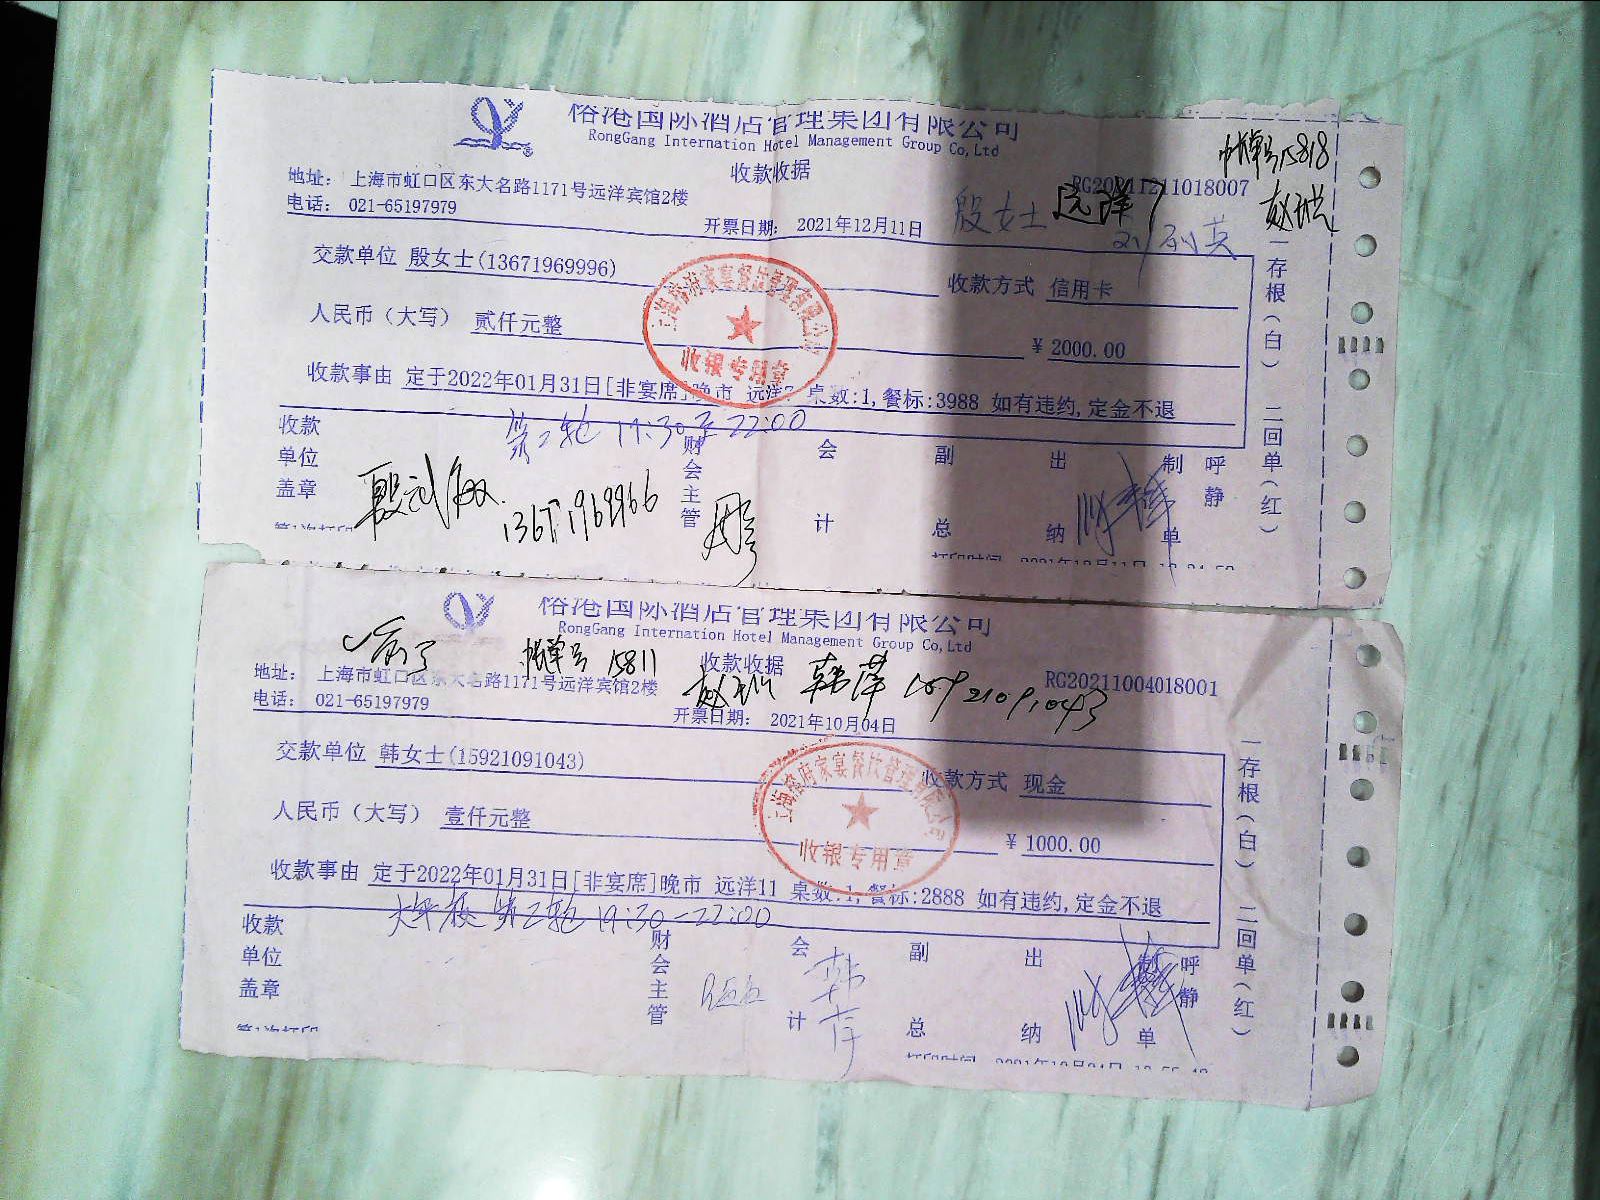 榕港国际酒店管理集团有限公司
RongGang Internation Hotel Management Group Co,Ltd
帐单号15818
收款收据
RG20211211018007
地址: 上海市虹口区东大名路1171号远洋宾馆2楼
电话: 021-65197979
开票日期: 2021年12月11日
殷女士 远洋7
交款单位 殷女士(13671969996)
收款方式 信用卡
人民币(大写) 贰仟元整
¥ 2000.00
上海榕府家宴餐饮管理有限公司
收银专用章
收款事由 定于2022年01月31日[非宴席]晚市 远洋7 桌数:1,餐标:3988 如有违约,定金不退
第2轮 19:30至22:00
收款单位盖章
财会主管
会计
副总
出纳
制单
呼静
一存根(白) 二回单(红)
13671969966
第1次打印
打印时间 2021年12月11日
榕港国际酒店管理集团有限公司
RongGang Internation Hotel Management Group Co,Ltd
帐单号 15811
收款收据
韩萍 15921091043
RG20211004018001
地址: 上海市虹口区东大名路1171号远洋宾馆2楼
电话: 021-65197979
开票日期: 2021年10月04日
交款单位 韩女士(15921091043)
收款方式 现金
人民币(大写) 壹仟元整
¥ 1000.00
上海榕府家宴餐饮管理有限公司
收银专用章
收款事由 定于2022年01月31日[非宴席]晚市 远洋11 桌数:1,餐标:2888 如有违约,定金不退
第2轮 19:30-22:00
收款单位盖章
财会主管
会计
副总
出纳
制单
呼静
一存根(白) 二回单(红)
第1次打印
打印时间 2021年10月04日